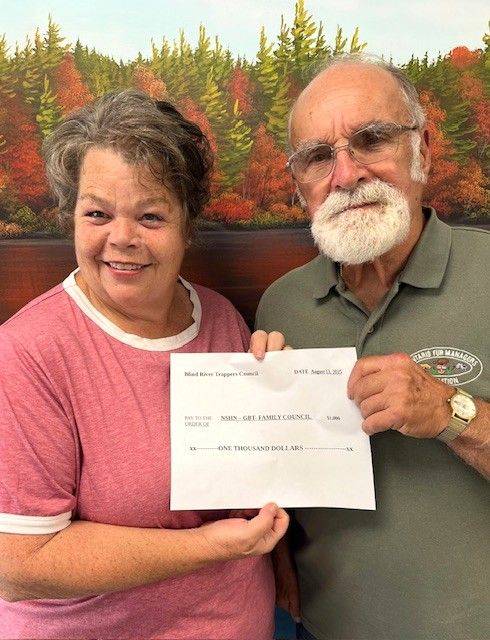 Blind River Trappers Council DATE August 13, 2025
PAY TO THE
ORDER OF NSHN – GBT- FAMILY COUNCIL $1,000
xx-----------ONE THOUSAND DOLLARS -----------------xx
ONTARIO FUR MANAGERS